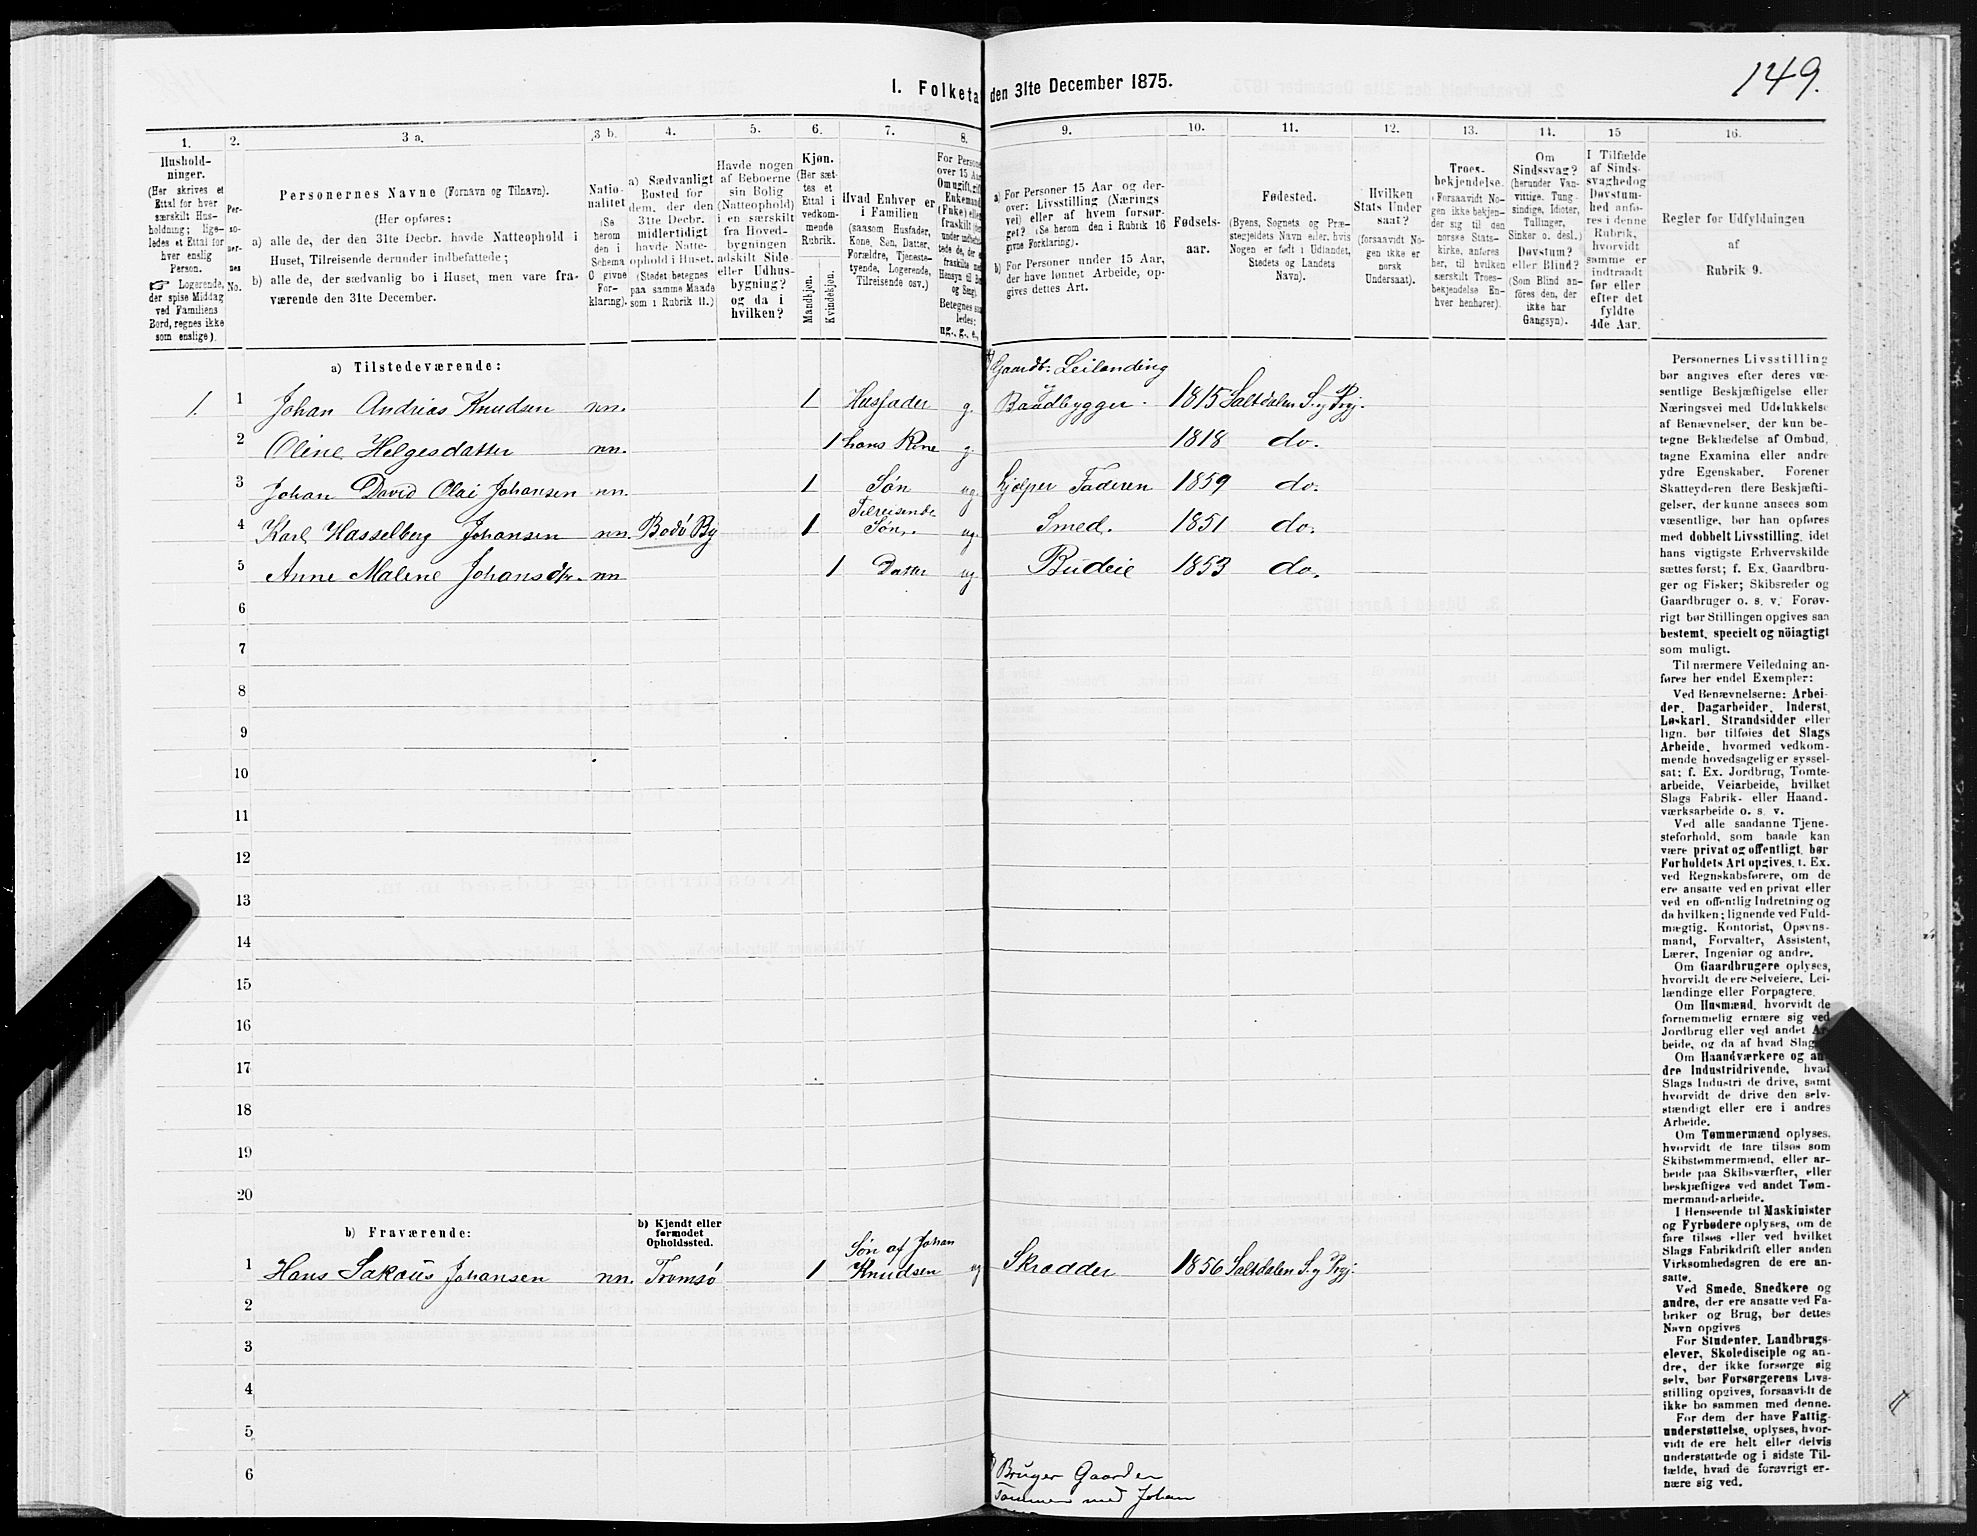 149.
1. Folketa den 31te December 1875.
1. 2. 3 a. 3 b. 4. 5. 6. 7. 8. 9. 10. 11. 12. 13. 14. 15 16.
Hushold-
ninger.
(Her skrives et
Ettal for hver
særskilt Hus-
holdning; lige-
ledes et Ettal for
hver enslig
Person.
☞ Logerende,
der spise Middag
ved Familiens
Bord, regnes ikke
som enslige).
Per-
so-
ner-
nes
No.
Personernes Navne (Fornavn og Tilnavn).
(Her opføres:
a) alle de, der den 31te Decbr. havde Natteophold i
Huset, Tilreisende derunder indbefattede;
b) alle de, der sædvanlig bo i Huset, men vare fra-
værende den 31te December.
Natio-
nalitet
(Se
herom
den i
Schema
O givne
For-
klaring).
a) Sædvanligt
Bosted for
dem, der den
31te Decbr.
midlertidigt
havde Natte-
ophold i Huset.
(Stedet betegnes
paa samme Maade
som i Rubrik 11.)
Havde nogen
af Beboerne
sin Bolig
(Natteophold)
i en særskilt
fra Hoved-
bygningen
adskilt Side-
eller Udhus-
bygning?
og da i
hvilken?
Kjøn.
(Her sæt-
tes et
Ettal i
vedkom-
mende
Rubrik.
Mandkjøn.
Kvindekjøn.
Hvad Enhver er
i Familien
(saasom Husfader,
Kone, Søn, Datter,
Forældre, Tjeneste-
tyende, Logerende,
Tilreisende osv.)
For Persone
over 15 Aar
Om ugift, gift
Enkemand
(Enke) elle
fraskilt
Betegnes saa
ledes:
ug., g., e.,
a) For Personer 15 Aar og der-
over: Livsstilling (Nærings
vei) eller af hvem forsør-
get? (Se herom den i Rubrik 16
givne Forklaring).
b) For Personer under 15 Aar,
der have lønnet Arbeide, op-
gives dettes Art.
Fødsels-
aar.
Fødested.
(Byens, Sognets og Præ-
stegjeldets Navn eller, hvis
Nogen er født i Udlandet,
Stedets og Landets
Navn).
Hvilken
Stats Under
saat?
(forsaavidt No-
gen ikke er
norsk
Undersaat).
Troes-
bekjendelse.
(Forsaavidt No-
gen ikke bekjen-
der sig til den
norske Stats-
kirke, anføres
her, til hvilken
særskilt Troes-
bekjendelse En-
hver henhører).
Om
Sindssvag?
(herunder Van-
vittige, Tung-
sindige, Idioter,
Tullinger,
Sinker o. desl.)
Døvstum?
eller Blind?
(Som Blind an-
føres den, der
ikke har
Gangsyn).
I Tilfælde
af Sinds-
svaghed og
Døvstum-
hed anfø-
res i denne
Rubrik,
hvorvidt
samme er
indtraadt
før eller
efter det
fyldte
4de Aar.
Regler for Udfyldningen
af
Rubrik 9.
a) Tilstedeværende:
*) Gaardb: Leilending
1. 1 Johan Andrias Knudsen nn. 1 Husfader g. Baadbygger. 1815 Saltdalen S. og Prgj.
2 Oline Helgesdatter nn. 1 hans Kone g. 1818 do.
3 Johan David Olai Johansen nn. 1 Søn ug. hjælper Faderen 1859 do.
Tilreisende
4 Karl Hasselberg Johansen nn. Bodø By 1 Søn. ug. Smed. 1851 do.
5 Anne Malene Johansdtr. nn 1 Datter ug Budeie 1853 do.
6
7
8
9
10
11
12
13
14
15
16
17
18
19
20
b) Fraværende:
b) Kjendt eller
formodet
Opholdssted.
Søn af Johan
1 Hans Johansen nn. Tromsø 1 Knudsen ug Skrædder 1856 Saltdalen S. og Prgj.
2
3
4
5
6
*) Bruger Gaarden
sammen med Johan
Personernes Livsstilling
bør angives efter deres væ-
sentlige Beskjæftigelse eller
Næringsvei med Udelukkelse
af Benævnelser, der kun be-
tegne Beklædelse af Ombud,
tagne Examina eller andre
ydre Egenskaber. Forener
Skatteyderen flere Beskjæfti-
gelser, der kunne ansees som
væsentlige, bør han opføres
med dobbelt Livsstilling, idet
hans vigtigste Erhvervskilde
sættes først; f. Ex. Gaardbru-
ger og Fisker; Skibsreder og
Gaardbruger o. s. v. Forøv-
rigt bør Stillingen opgives saa
bestemt, specielt og nöiagtigt
som muligt.
Til nærmere Veiledning an-
føres her endel Exempler:
Ved Benævnelserne: Arbei-
der, Dagarbeider, Inderst,
Løskarl, Strandsidder eller
lign. bør tilføies det Slags
Arbeide, hvormed vedkom-
mende hovedsagelig er syssel-
sat; f. Ex. Jordbrug, Tomte-
arbeide, Veiarbeide, hvilket
Slags Fabrik- eller Haand-
værksarbeide o. s. v.
Ved alle saadanne Tjene-
steforhold, som baade kan
være privat og offentligt, bør
Forholdets Art opgives, f. Ex.
ved Regnskabsførere, om de
ere ansatte ved en privat eller
ved en offentlig Indretning og
da hvilken; lignende ved Fuld-
mægtig, Kontorist, Opsyns-
mand, Forvalter, Assistent,
Lærer, Ingeniør og andre.
Om Gaardbrugere oplyses,
hvorvidt de ere Selveiere, Lei-
lændinge eller Forpagtere.
Om Husmænd, hvorvidt de
fornemmelig ernære sig ved
Jordbrug eller ved andet Ar-
beide, og da af hvad Slags
Om Haandværkere og an-
dre Industridrivende, hvad
Slags Industri de drive, samt
hvorvidt de drive den selv-
stændigt eller ere i andres
Arbeide.
Om Tømmermænd oplyses,
hvorvidt de fare tilsøs som
Skibstømmermænd, eller ar-
beide paa Skibsværfter, eller
beskjæftiges ved andet Tøm-
mermandsarbeide.
I Henseende til Maskinister
og Fyrbødere oplyses, om de
fare tilsøs eller ved hvilket
Slags Fabrikdrift eller anden
Virksomhedsgren de ere an-
satte.
Ved Smede, Snedkere og
andre, der ere ansatte ved Fa-
briker og Brug, bør dettes
Navn opgives
For Studenter, Landbrugs-
elever, Skoledisciple og an-
dre, der ikke forsørge sig
selv, bør Forsørgerens Livs-
stilling opgives, forsaavidt de
ikke bo sammen med denne.
For dem der have Fattig-
understøttelse, oplyses, hvor-
vidt de ere helt eller delvis
understøttede og i sidste Til-
fælde, hvad de forøvrigt er-
nære sig ved.